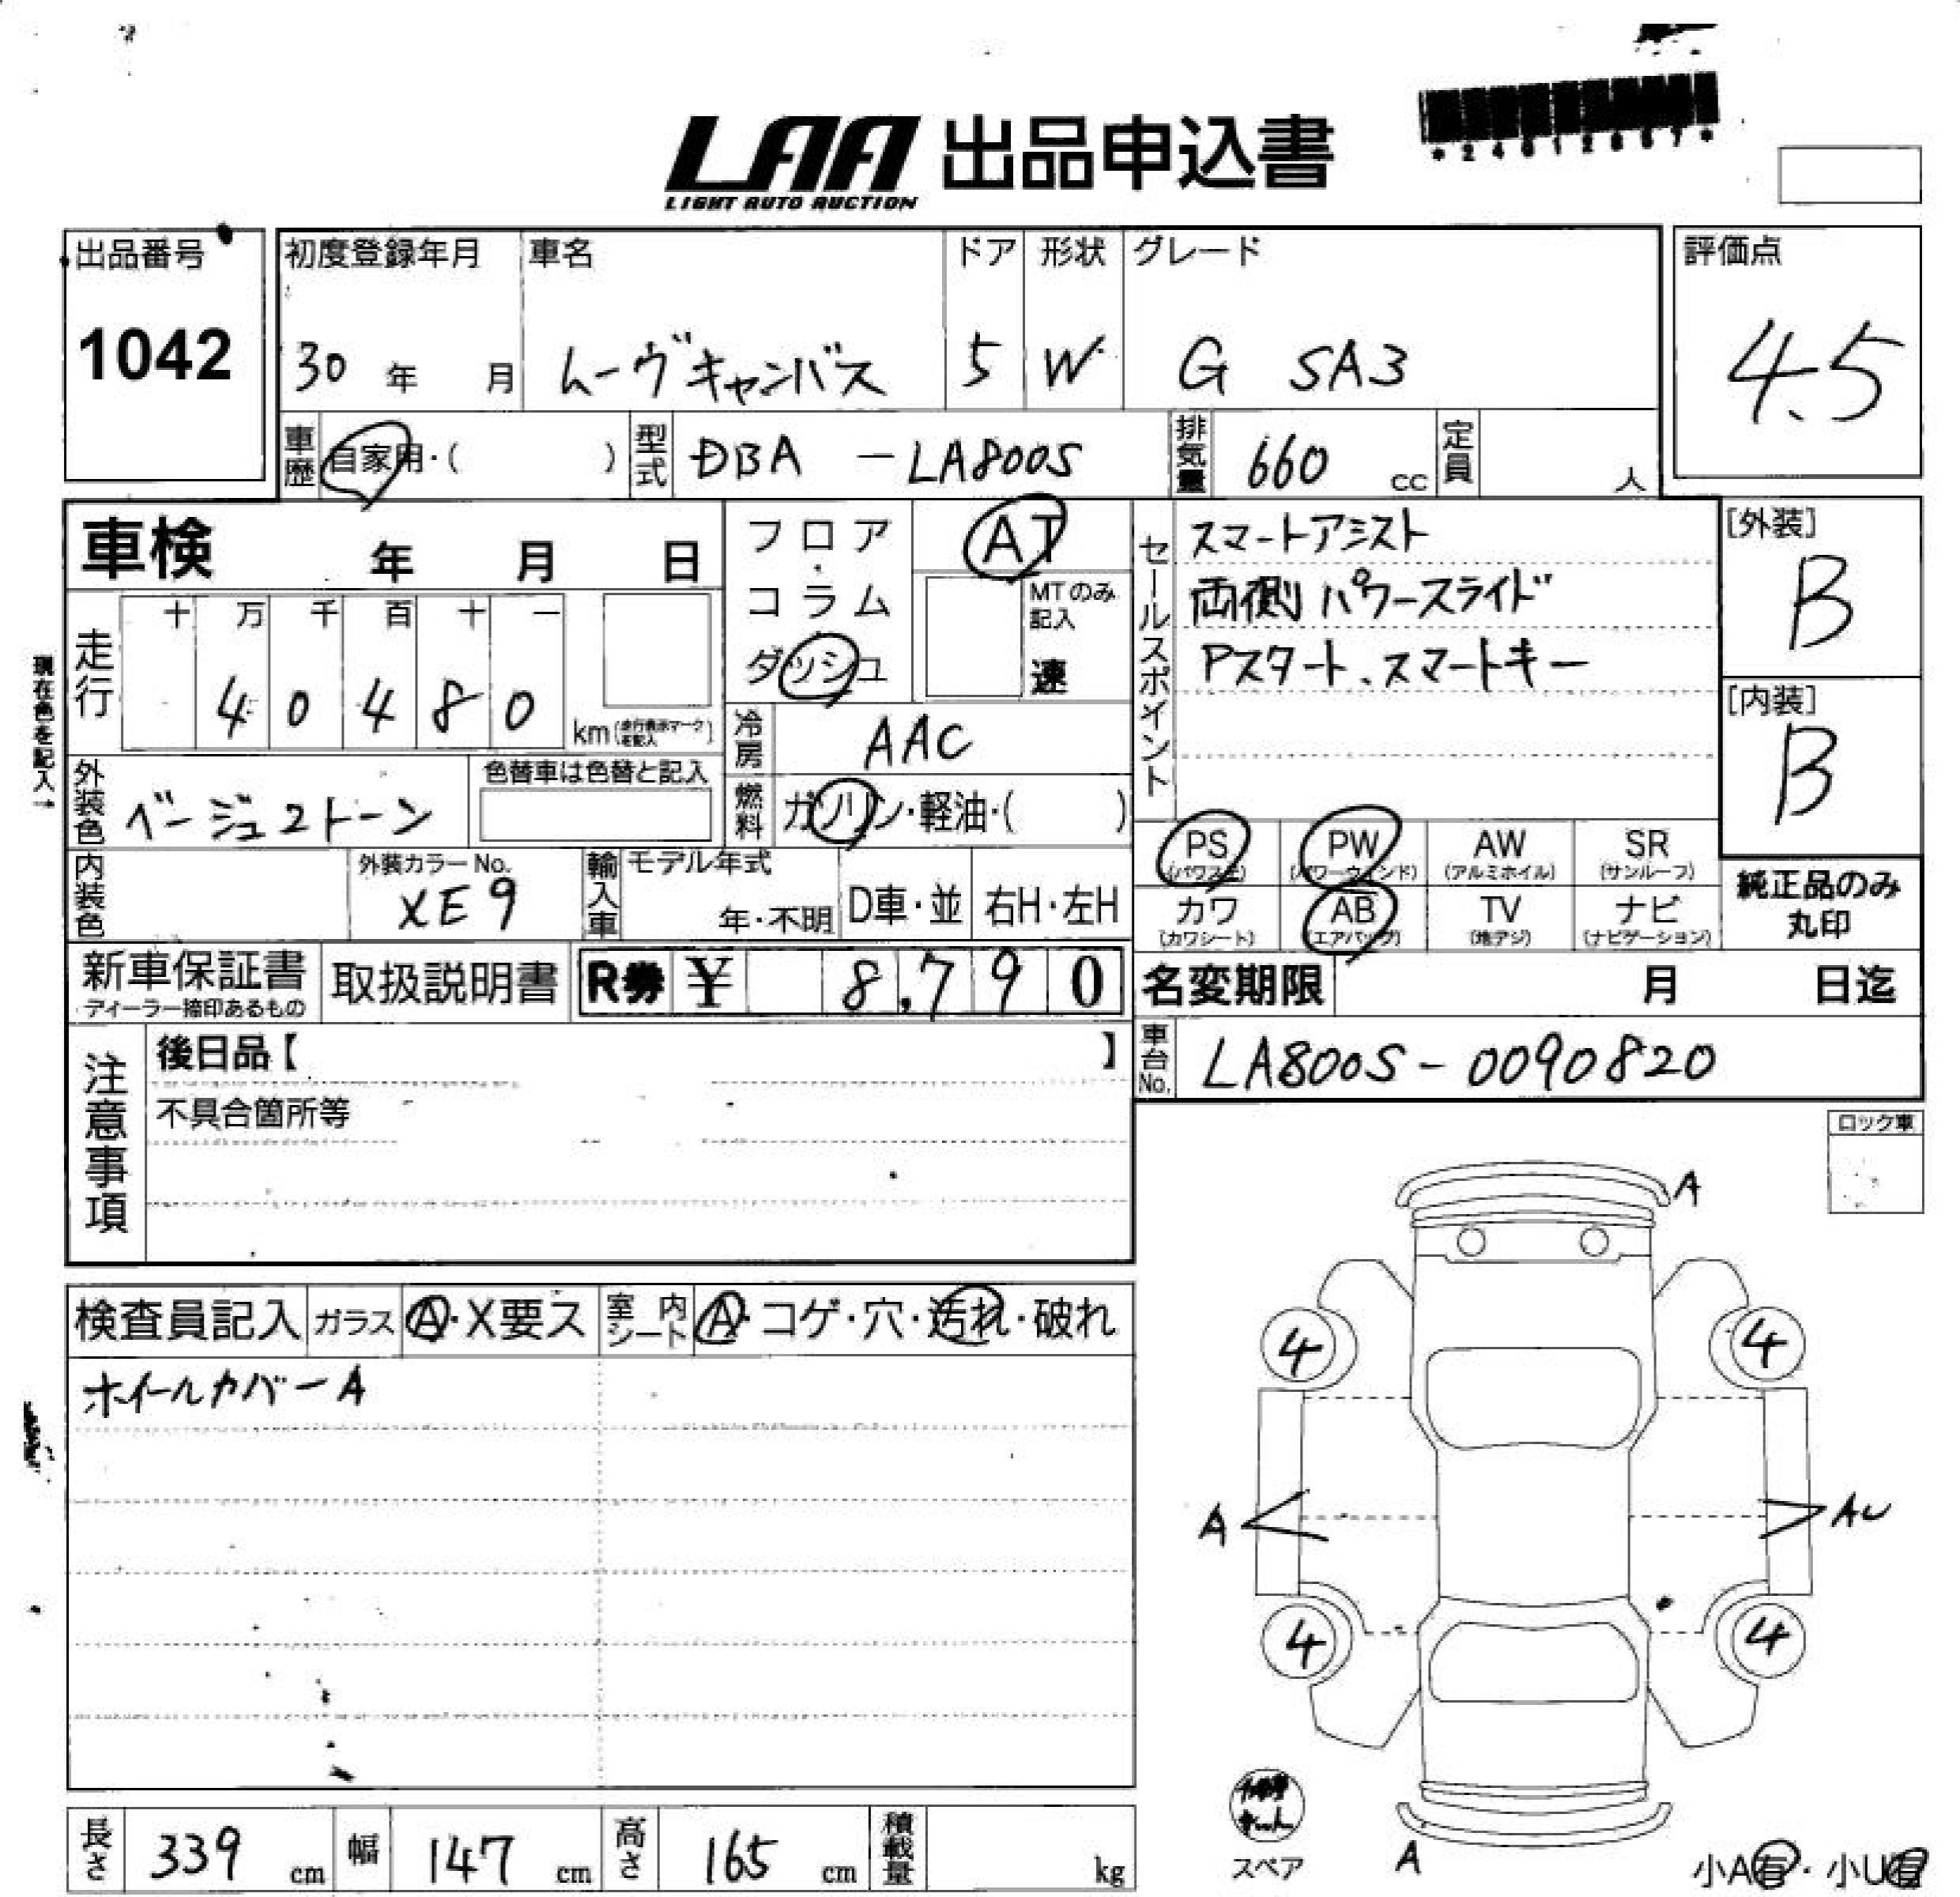 LAA 出品申込書
LIGHT AUTO AUCTION
出品番号
1042
初度登録年月 車名 ドア 形状 グレード
30 年 月 ムーヴキャンバス 5 W G SA3
評価点
4.5
車歴 自家用・( ) 型式 DBA - LA800S 排気量 660 cc 定員 人
車検 年 月 日
フロア・コラム ダッシュ
AT
MTのみ記入
速
走行 十 万 千 百 十 一
4 0 4 8 0 km
現在色を記入→
冷房 AAC
外装色 ベージュ2トーン
色替車は色替と記入
燃料 ガソリン・軽油・( )
内装色
外装カラーNo.
XE9
輸入車 モデル年式
年・不明 D車・並 右H・左H
セールスポイント
スマートアシスト
両側パワースライド
Pスタート、スマートキー
[外装]
B
[内装]
B
PS (パワステ) PW (パワーウインド) AW (アルミホイル) SR (サンルーフ)
カワ (カワシート) AB (エアバッグ) TV (地デジ) ナビ (ナビゲーション)
純正品のみ
丸印
新車保証書
ディーラー捺印あるもの
取扱説明書
R券 ¥ 8,790
名変期限 月 日迄
車台No. LA800S-0090820
注意事項
後日品【 】
不具合箇所等
ロック車
検査員記入 ガラス A・X要ス 室内シート A・コゲ・穴・汚れ・破れ
ホイールカバーA
A
4 4
A AU
4 4
A
スペア
小A有・小U有
長さ 339 cm 幅 147 cm 高さ 165 cm 積載量 kg